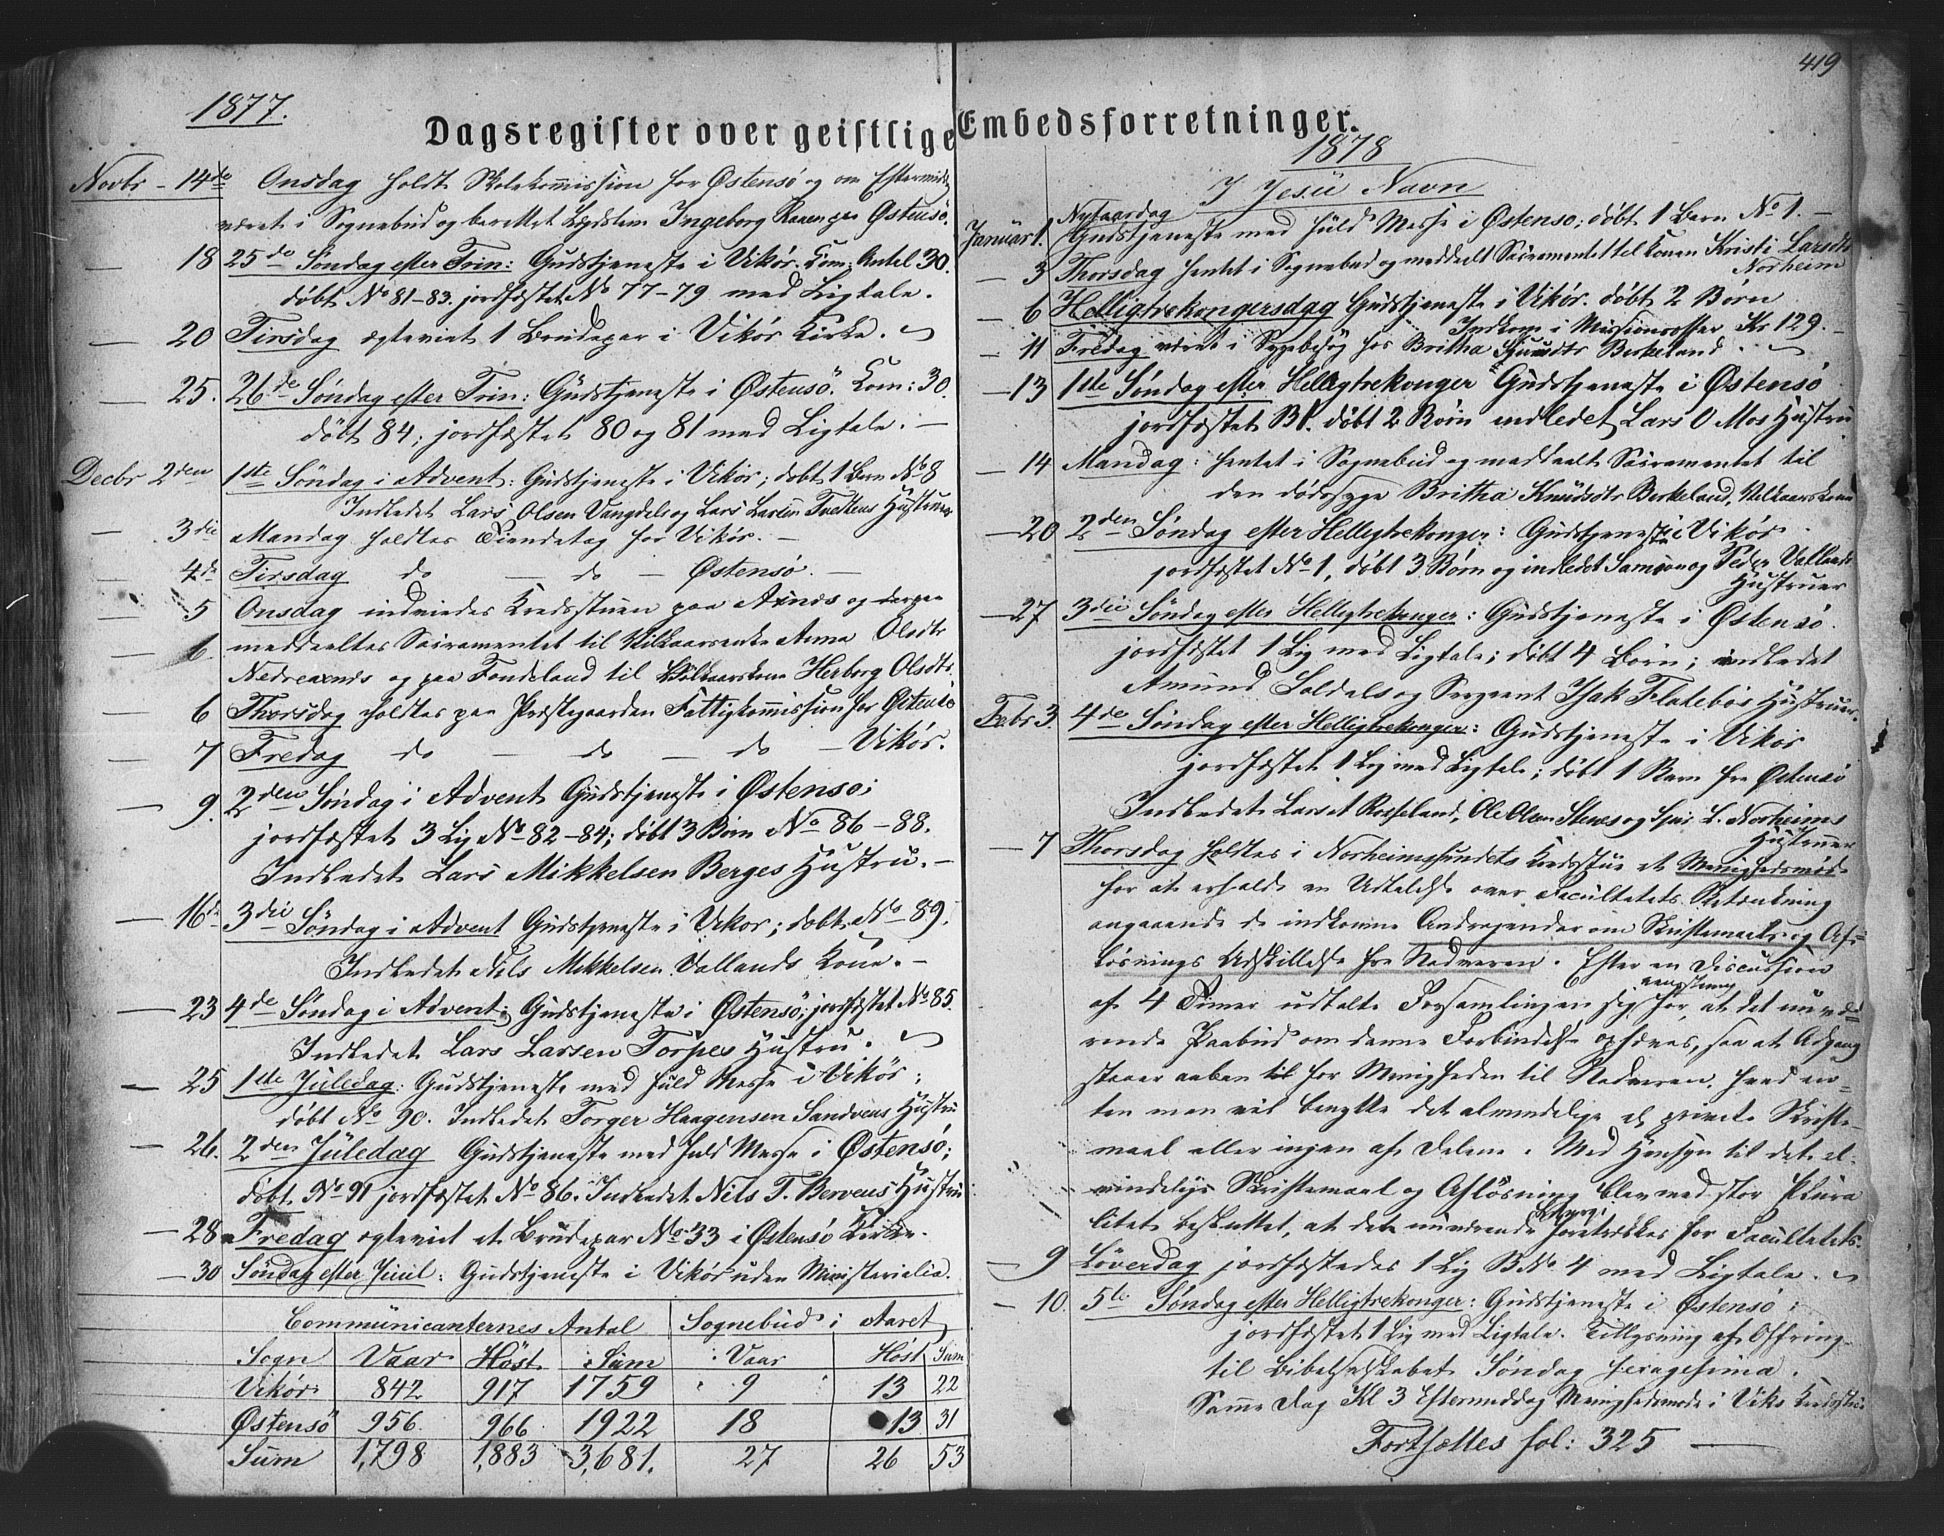 1877.
Dagsregister over geistlige Embedsforretninger.
419
Novbr - 14de Onsdag holdt Skolekommission for Østensö og om Eftermiddag
været i Sognebud og berettet Ingeborg paa Østensö.
— 18 25de Søndag efter Trin: Gudstjeneste i Vikör. Kom: Antal 30.
döbt No 81-83. jordfæstet No 77-79 med Ligtale.
— 20 Tirsdag ægteviet 1 Brudepar i Vikör Kirke.
— 25. 26de Søndag efter Trin: Gudstjeneste i Østensö. Kom: 30.
döbt 84; jordfæstet 80 og 81 med Ligtale. —
Decbr 2den 1ste Søndag i Advent: Gudstjeneste i Vikör; döbt 1 Barn No 8
Indledet Lars Olsen Vangdals og Lars Larsen Tveitens Hustruer
— 3die Mandag holdtes Tiendetag for Vikör. —
— 4de Tirsdag do — do — Østensö. —
— 5 Onsdag indviedes Kredsstuen paa Axnes og derpaa
— 6 meddeeltes Sacramentet til Vilkaarsenke Anna Olsdtr
Nedreaxnes og paa Tondeland til Vilkaarskone Herborg Olsdtr.
— 6 Thorsdag holdtes paa Præstegaarden Fattigkommission for Østensö
— 7 Fredag do — do — do — Vikör.
— 9. 2den Søndag i Advent Gudstjeneste i Østensö;
jordfæstet 3 Lig No 82-84; döbt 3 Börn No 86-88.
Indledet Lars Mikkelsen Berges Hustru. —
— 16de 3die Søndag i Advent Gudstjeneste i Vikör; döbt No 89.
Indledet Nils Mikkelsen Vallands Kone. —
— 23 4de Søndag i Advent: Gudstjeneste i Østensö; jordfæstet No 85.
Indledet Lars Larsen Torpes Hustru.
— 25 1ste Juledag: Gudstjeneste med fuld Messe i Vikör;
döbt No 90. Indledet Torger Haagensen Sandvens Hustru
— 26. 2den Juledag Gudstjeneste med fuld Messe i Østensö;
döbt No 91 jordfæstet No 86. Indledet Nils T. Bervens Hustru
— 28 Fredag ægteviet et Brudepar No 33 i Østensö Kirke.
— 30 Søndag efter Juul: Gudstjeneste i Vikör uden Ministerialia.
Communicanternes Antal Sognebud i Aaret
Sogn Vaar Höst Sum Vaar Höst Sum
Vikör 842 917 1759 9 13 22
Østensö 956 966 1922 18 13 31
Sum 1,798 1,883 3,681. 27 26 53
1878
I Jesu Navn
Nytaarsdag
Januar 1. Gudstjeneste med fuld Messe i Østensö; döbt 1 Barn No 1. —
— 3 Thorsdag hentet i Sognebud og meddeelt Sacramentet til Konen Kristi Larsdtr
Norheim
— 6 Helligtrekongersdag Gudstjeneste i Vikör. döbt 2 Börn
Indkom i Missionsoffer Kr 129. —
— 11 Fredag været i Sygebesög hos Britha Berkeland.
— 13 1ste Søndag efter Helligtrekonger Gudstjeneste i Østensö
jordfæstet B 1. döbt 2 Börn indledet Lars O Mos Hustru
— 14 Mandag: hentet i Sognebud og meddeelt Sacramentet til
den dödssyge Britha Knudsdtr Berkeland, Vilkaarskone
— 20 2den Søndag efter Helligtrekonger: Gudstjeneste i Vikör
jordfæstet No 1, döbt 3 Börn og indledet Samson og Peder Vallands
Hustruer
— 27 3die Søndag efter Helligtrekonger: Gudstjeneste i Østensö.
jordfæstet 1 Lig med Ligtale; döbt 4 Börn; indledet
Amund Soldals og Sergeant Isak Flatebös Hustruer.
Febr 3. 4de Søndag efter Helligtrekonger: Gudstjeneste i Vikör
jordfæstet 1 Lig med Ligtale; döbt 1 Barn fra Østensö
Indledet Lars Rosseland, Ole Olsen Steines og L. Norheims
Hustruer
— 7 Thorsdag holdtes i Norheimssundets Kredsstue et Menighedsmöde
for at erholde en Udtalelse over Facultetets Betænkning
angaaende de indkomne Andragender om Skriftemaals og Af-
lösnings Udskillelse fra Nadveren. Efter en Discussion
af 4 Timer udtalte Forsamlingen sig for, at det nuvæ-
rende Paabud om denne Forbindelse ophæves, saa at Adgang
staaer aaben til for Menigheden til Nadveren, hvad en-
ten man vil benytte det almindelige el private Skrifte-
maal eller ingen af Delene. Med Hensyn til det al-
mindelige Skriftemaal og Aflösning blev med stor Plura
litet besluttet, at den nuværende foretrækkes for Facultetets.
— 9 Löverdag jordfæstedes 1 Lig B No 4 med Ligtale.
— 10. 5te Søndag efter Helligtrekonger: Gudstjeneste i Østensö;
jordfæstet 1 Lig med Ligtale. Tillysning af Offring
til Bibelselskabet Søndag Sexagesima.
Samme Dag Kl 3 Eftermiddag Menighedsmöde i Viks Kredsstue
Fortsættes fol: 325 —